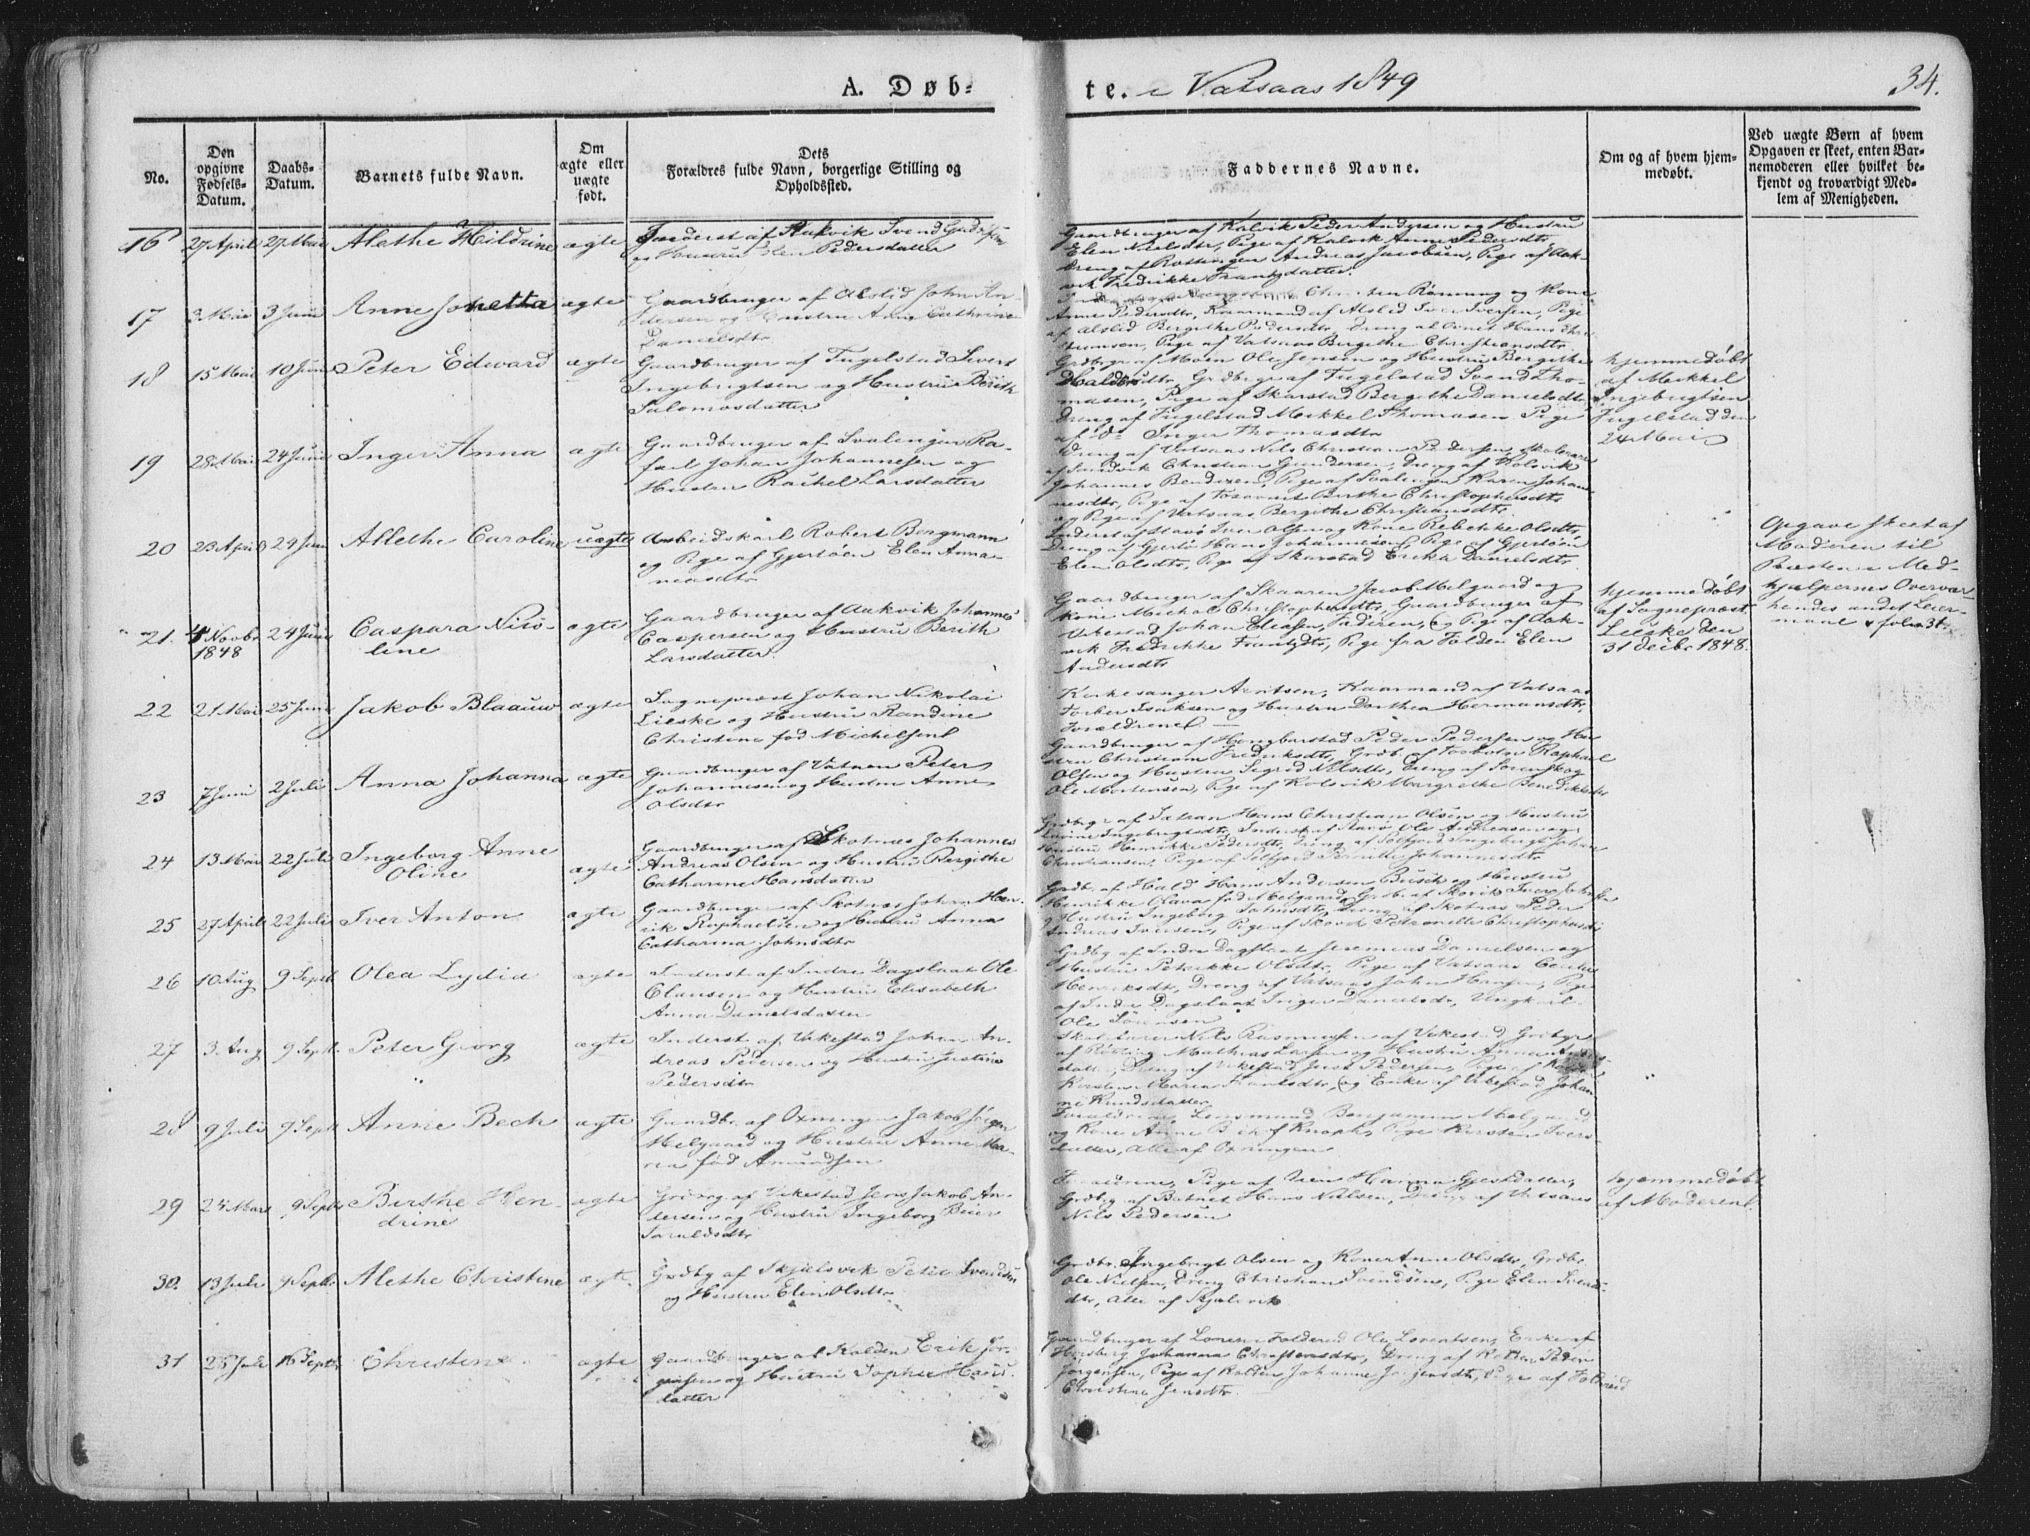 A. Døb-
te. i Vatsaas 1849
34.
No.
Den opgivne Fødsels-Datum.
Daabs-Datum.
Barnets fulde Navn.
Om ægte eller uægte født.
Dets Forældres fulde Navn, borgerlige Stilling og Opholdssted.
Faddernes Navne.
Om og af hvem hjem-
medøbt.
Ved uægte Børn af hvem
Opgaven er skeet, enten Bar-
nemoderen eller hvilket be-
kjendt og troværdigt Med-
lem af Menigheden.
16 27 April 27 Mai Alethe Hildrine ægte Inderst af Aakvik Svend
og Hustru Elen Pedersdatter
Gaardbruger af Kalvik Peder Andersen og Hustru
Elen Nielsdtr, Pige af Kalvik Anne Pedersdtr
Dreng af Rottingen Andreas Jacobsen, Pige af Aak-
vik Fredrikke Frantzdatter.
17 3 Mai 3 Juni Anne Johetta ægte Gaardbruger af Alslid John An-
dersen og Hustru Anne Cathrine
Danielsdtr
Rønning og Kone
Anne Pedersdtr, Kaarmand af Alslid Iver Iversen, Pige
af Alslid Bergithe Pedersdtr, Dreng Hans
Pige af Vatsaas Bergithe Christiansdtr
18 15 Mai 10 Juni Peter Edward ægte Gaardbruger af Fugelstad Sivert
Ingebrigtsen og Hustru Berith
Salomosdatter
Grdbrgr af Moen Ole Jensen og Hustru Bergithe
Grdbrgr af Fugelstad Svend Tho-
masen, Pige af Skarstad Bergithe Danielsdtr
Dreng af Fugelstad Mekkel Thomasen Pige
af do Inger Thomasdtr
hjemmedøbt
af Mekkel
Ingebrigtsen
Fugelstad den
24 Mai
19 28 Mai 24 Juni Inger Anna ægte Gaardbruger af Svalengen Ra-
fael Johan Johannesen og
Hustru Rachel Larsdatter
Dreng af Vatsaas Nils Christian Pedersen, Skolelærer
af Sandvik Christian Gundersen, Dreng af Kolsvik
Johannes Bendixen, Pige af Svalengen Karen Johan-
nesdtr, Pige af Berthe Christophersdtr
og Pige af Vatsaas Bergithe Christiansdtr
20 23 April 24 Juni Allethe Caroline uægte Arbeidskarl Robert Borgmann
og Pige af Gjertøen Elen Anna-
niasdtr
Inderst af Stavø Iver Olsen og Kone Rebekke Olsdtr,
Dreng af Gjertø Hans Johannesen, Pige af Gjertøen
Elen Olsdtr, Pige af Skarstad Ericka Danielsdtr
Opgave skeet af
Moderen til
Præsten i Med-
hjælpernes Overvær
hendes andet Leier-
maal
21. 4 Novbr 1848 24 Juni Caspara Nico-
line ægte Gaardbruger af Aakvik Johannes
Caspersen og Hustru Berith
Larsdatter.
Gaardbruger af Skaaren Jacob Melgaard og
Kone Michal Christophersdtr, Gaardbruger af
Vikestad Johan Eliasen, Faderen, og Pige af Aak-
vik Fredrikke Frantzdtr, Pige fra Folden Elen
Andersdtr
hjemmedøbt
af Sogneprest
Lieske den
31 Decbr 1848.
22 21 Mai 25 Juni Jakob Blaauw ægte Sogneprest Johan Nikolai
Lieske og Hustru Randine
Christine fød Michelsen
Kirkesanger Arntsen, Kaarmand af Vatsaas
Torber Isaksen og Hustru Dorthea Hermansdtr,
Forældrene
23 7 Juni 2 Juli Anna Johanna ægte Gaardbruger af Vatsaas Peter
Johannesen og Hustru Anne
Olsdtr
Gaardbruger af Peder Pedersen og Hus-
tru Christiana Fredriksdtr, Grdb af Raphael
Olsen og Hustru Sigrid Nilsdtr, Dreng af
Ole Mortensen, Pige af Kolsvik Margrethe Benediktsdtr
24 13 Mai 22 Juli Ingeborg Anne
Oline ægte Gaardbruger af Skotnes Johannes
Andreas Olsen og Hustru Bergithe
Catharine Hansdatter
Grdbrgr af Hans Christian Olsen og Hustru
Ingebrigtsdtr, Inderst af Stavø Ole Andreasen og
Hustru Henrikke Pedersdtr, Dreng af Ingebrigt Johan
Christiansen, Pige af Pernille Johannesdtr
25 27 April 22 Juli Iver Anton ægte Gaardbruger af Skotnes Johan Hen-
rik Raphaelsen og Hustru Anna
Catharina Johnsdtr
Grdbr. af Hald Hans Andersen Busch og Hustru
Henrikke Olava fød Melgaard, Grdb. af Skorik Iver
og Hustru Ingeborg Johnsdtr, Dreng af Skotnes Peder
Andreas Iversen, Pige af Skorik Petronelle Christophersdtr
26 10 Aug 9 Septb Olea Lydia ægte Inderst af Indre Dagslaat Ole
Clausen og Hustru Elisabeth
Anna Danielsdatter
Grdbg af Indre Dagslaat Jeremias Danielsen og
Hustru Petrikke Olsdtr, Pige af Vatsaas
Henriksdtr, Dreng af Vatsaas John Hansen, Pige
af Indre Dagslaat Inger Danielsdtr, Ungkarl
Ole Sørensen
27 3. Aug 9 Septb. Peter Georg ægte Inderst af Vikestad Johan An-
dreas Pedersen og Hustru Justine
Pedersdtr
Skolelærer Nils Rasmussen af Vikestad, Grdbgr
af Røtting Mathias Larsen og Hustru Anna
Dreng af Vikestad Jens Pedersen, Pige af
Kirsten Maria Hansdtr, og Enke af Vikestad Johan-
ne Knudsdatter
28 9 Juli 9 Septb Anne Bech ægte Gaardbr. af Oxningen Jakob Jørgen
Melgaard og Hustru Anne Ma-
ria fød Amundsen
Forældrene, Lensmand Benjamin Melgaard
og Kone Anne Bech f Knoph, Pige Kirsten Ivers-
datter, Alle af Oxningen
29 24 Mars 9 Septb Berthe Hen-
drine ægte Grdbrg. af Vikestad Jens Jakob An-
dersen og Hustru Ingeborg Beier
Taraldsdtr
Forældrene, Pige af Hanna Gjertsdatter,
Grdbg af Hans Nilsen, Dreng af Vatsaas
Nils Pedersen
hjemmedøbt
af Moderen.
30. 13 Juli 9 Septb. Alethe Christine ægte Grdbg af Skjelsvik Peter Svendsen
og Hustru Elen Olsdtr
Grdbr. Ingebrigt Olsen og Kone Anne Olsdtr, Grdbr
Ole Nielsen, Dreng Christian Svendsen, Pige Elen Svends-
dtr, alle af Skjelsvik
31 25 Juli 16 Septb Christine ægte Gaardbruger af Kolden Erik Jør-
gensen og Hustru Sophie
datter
Gaardbruger af Foldereid Ole Lorentsen, Enke af
Horsberg Johanna Christensdtr, Dreng af Kolten Peder
Jørgensen, Pige af Kolten Johanne Jørgensdtr, Pige af Foldereid
Christine Jensdtr.